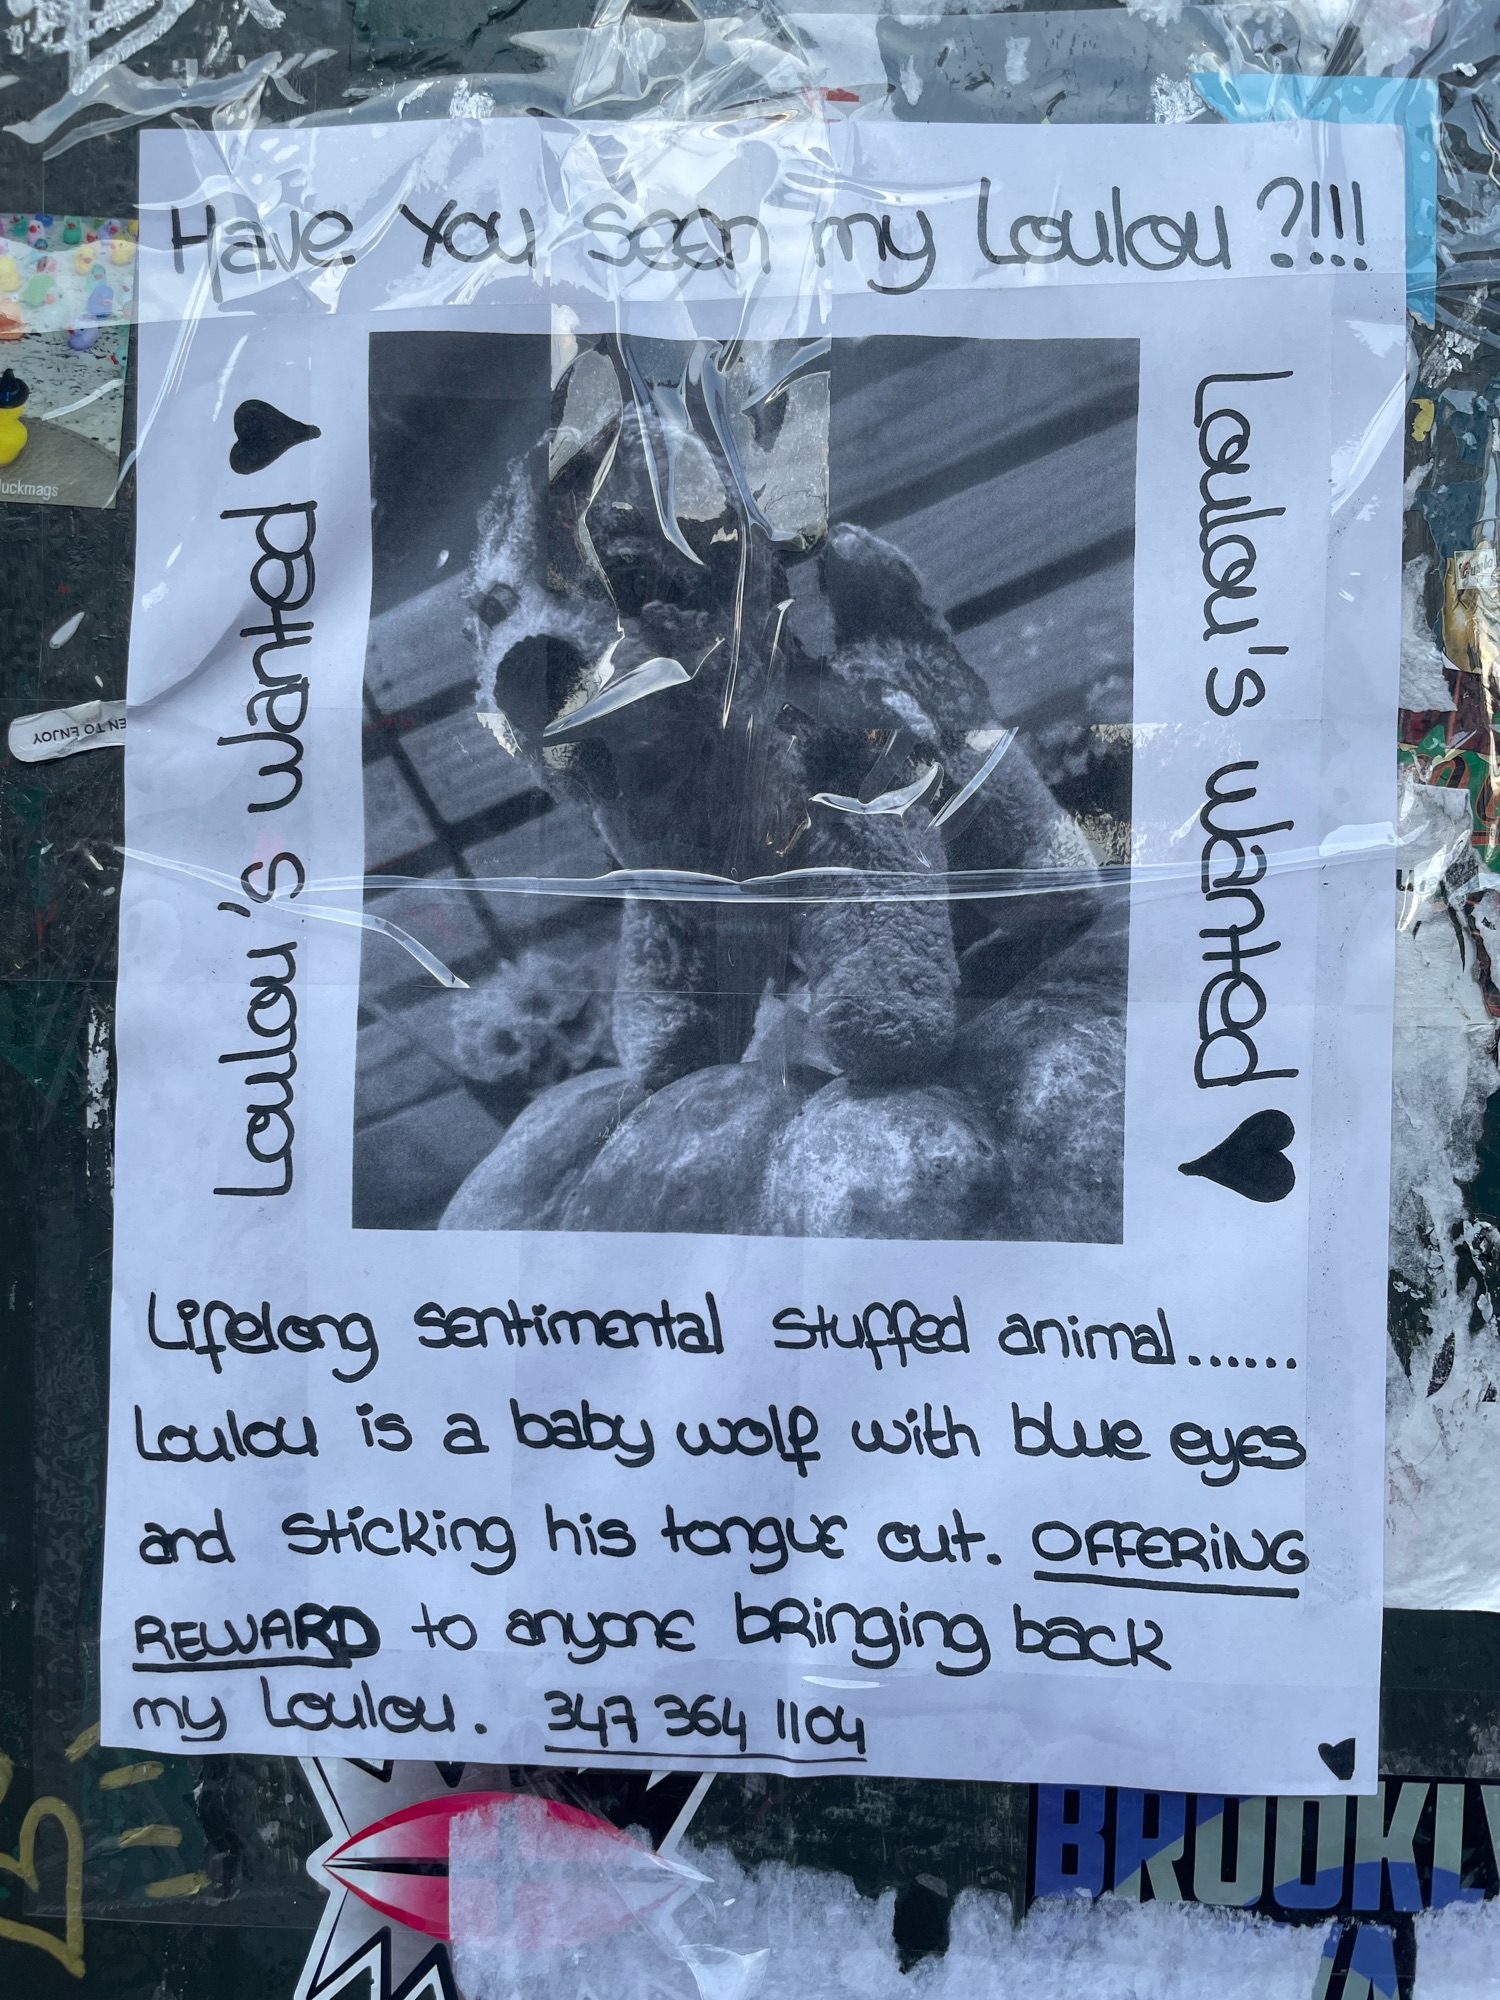 Have You seen my Loulou ?!!!
Loulou's wanted ♥
Loulou's wanted ♥
Lifelong sentimental stuffed animal......
Loulou is a baby wolf with blue eyes
and sticking his tongue out. OFFERING
REWARD to anyone bringing back
my Loulou. 347 364 1104
uckmags
EN TO ENJOY
BROOKLY